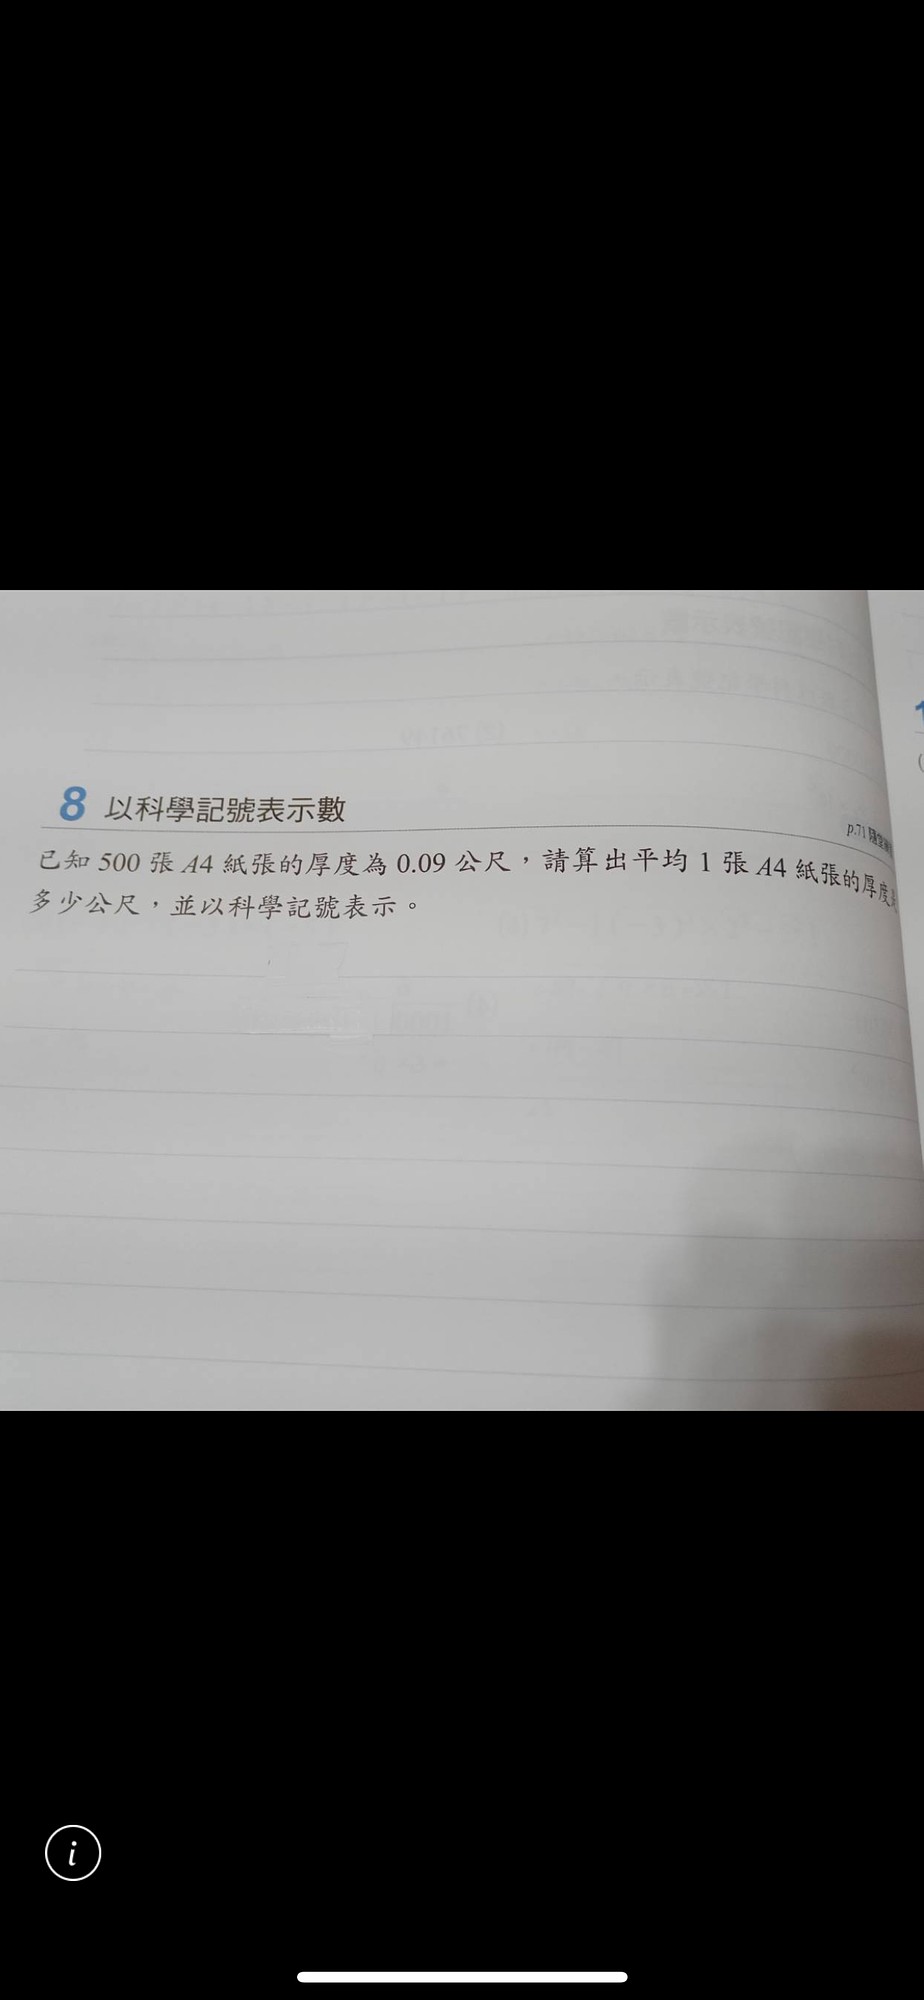 8 以科學記號表示數
p.71
已知 500 張 A4 紙張的厚度為 0.09 公尺，請算出平均 1 張 A4 紙張的厚度
多少公尺，並以科學記號表示。
i